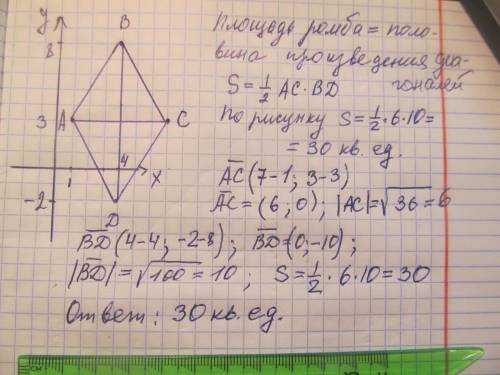 у
B
8
Площадь ромба = поло-
вина произведения диа-
гоналей
S = 1/2 AC · BD
3 A C
По рисунку S = 1/2 · 6 · 10 =
= 30 кв. ед.
4
1 X
AC (7-1; 3-3)
-2
D
AC = (6; 0); |AC| = √36 = 6
BD (4-4; -2-8); BD = (0; -10);
|BD| = √100 = 10; S = 1/2 · 6 · 10 = 30
Ответ: 30 кв. ед.